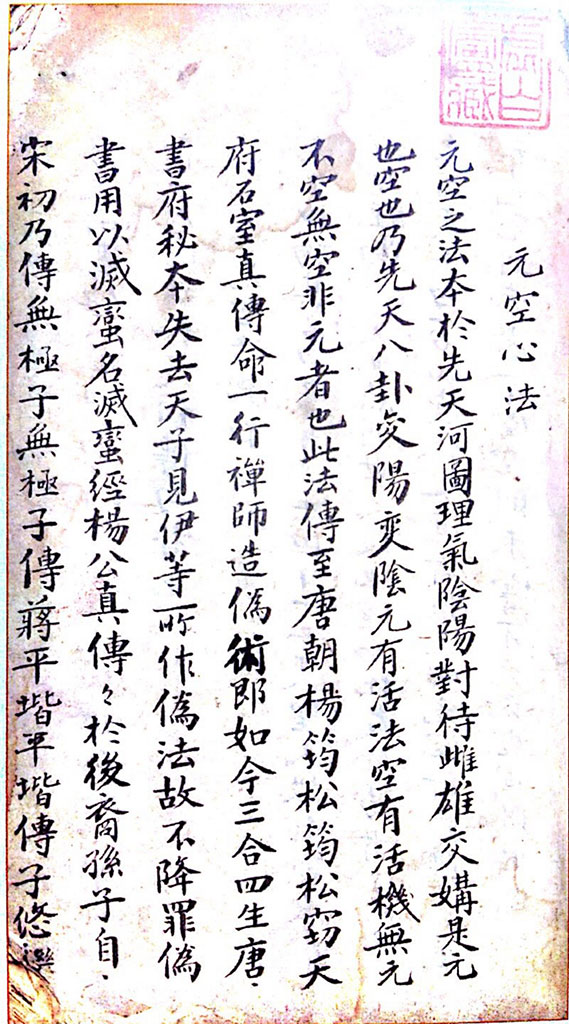 元空心法
元空之法本於先天河圖理氣陰陽對待雌雄交媾是元
也空也乃先天八卦交陽變陰元有活法空有活機無元
不空無空非元者也此法傳至唐朝楊筠松筠松竊天
府石室真傳命一行禪師造偽術即如今三合四生唐、
書府秘本失去天子見伊等所作偽法故不降罪偽
書用以滅蠻名滅蠻經楊公真傳々於後裔孫子自、
宋初乃傳無極子無極子傳蔣平堦平堦傳子悠